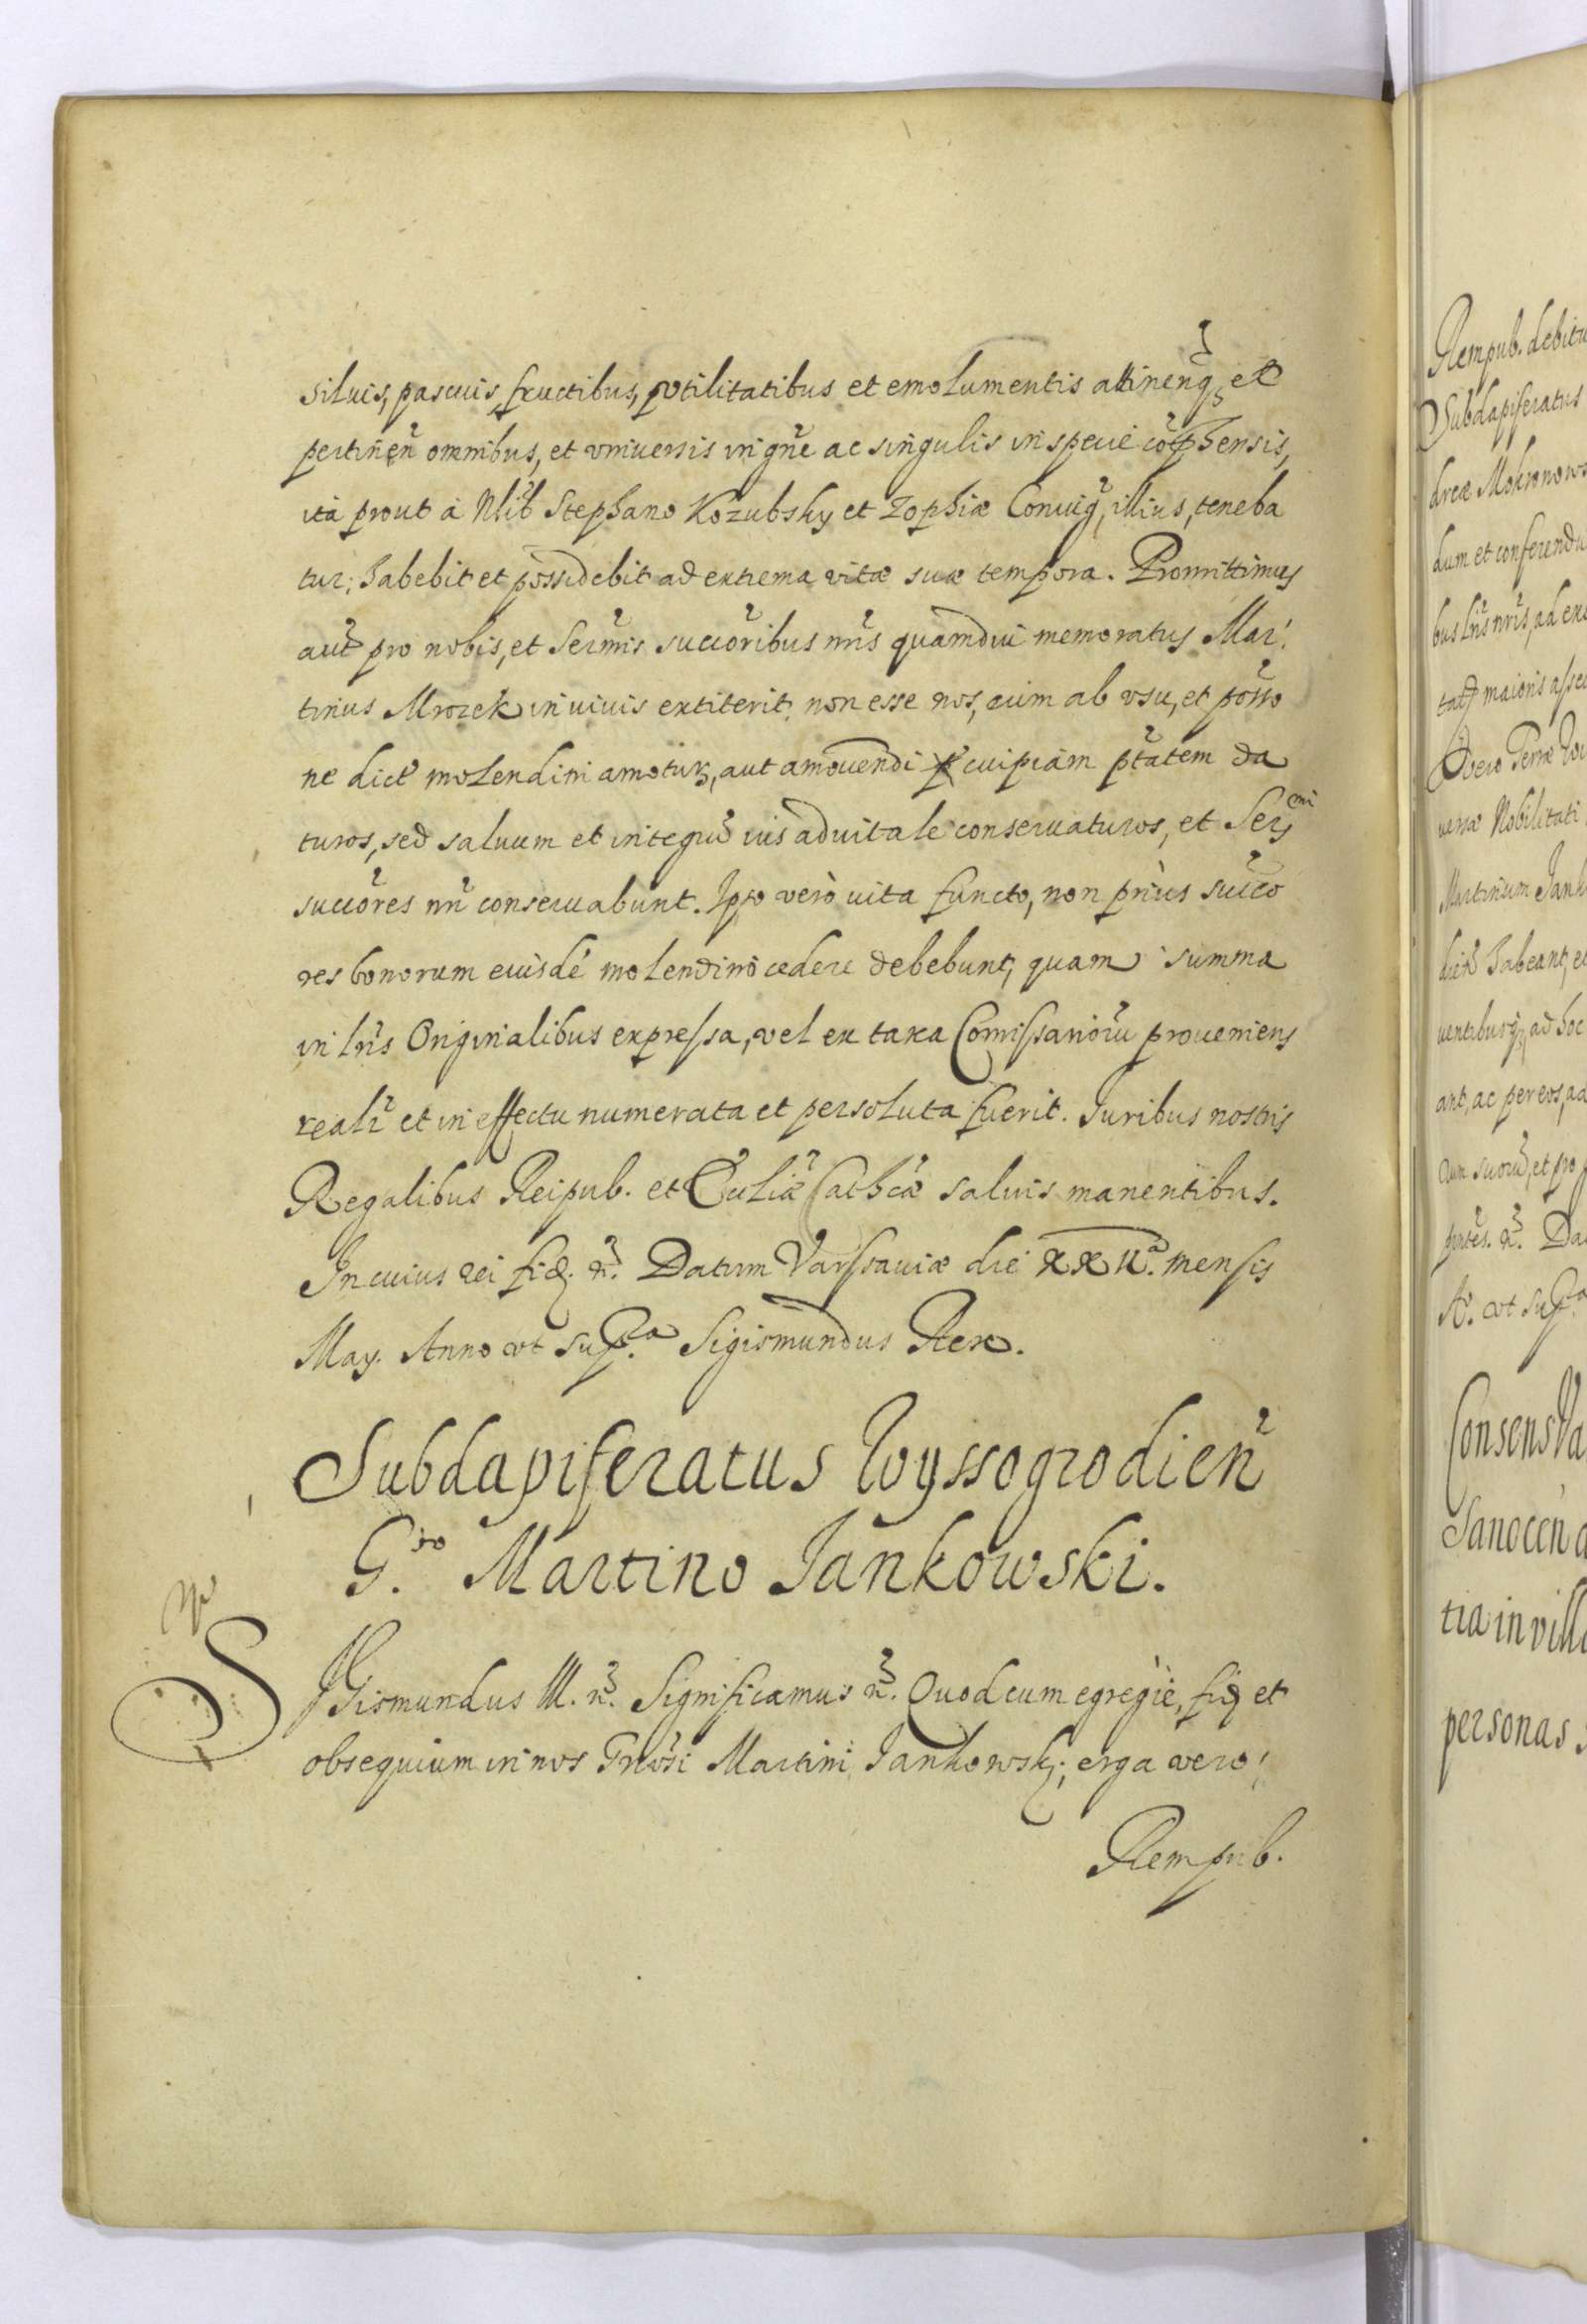 siluis, pascuis, fructibus, vtilitatibus et emolumentis attinenq, et
pertinen̄ omnibus, et vniuersis in gn̄e ac singulis in specie cōp̄hensis,
ità prout à Nlib Stephano Kozubsky et Zophiæ Coniug, illius, teneba
tur; habebit et possidebit ad extrema vitæ suæ tempora. Promittimus
aut̄ pro nobis, et Serm̄is succōribus nr̄is quamdiu memoratus Mar
tinus Mrozek in viuis extiterit, non esse nos, eum ab vsu, et possō
ne dict molendini amoturos, aut amouendi cuipiam ptātem da
turos, sed saluum et integrū ius aduitale conseruaturos, et Serᵐⁱ
succōres nr̄i conseruabunt. Ipso verò vita functo, non priùs succō
res bonorum eiusdē molendino cedere debebunt, quam summa
in lr̄is Originalibus expressa, vel ex taxa Comissariorū proueniens
realr̄ et in effectu numerata et persoluta fuerit. Iuribus nostris
Regalibus Reipub. et Eccliæ Cathcæ saluis manentibus.
In cuius rei fid. &. Datum Varssauiæ die XXII.ᵃ mensis
May. Anno vt supᵃ. Sigismundus Rex.
Subdapiferatus Wyssogrodien̄
G.ˢᵒ Martino Jankowski.
SIGismundus III. &. Significamus &. Quod cum egregiè, fid et
obsequium in nos Gnōsi Martini Jankowski; erga vero
Rempub.
Rempub. debitu
Subdapiferatus
dreæ Mokronows
dum et conferendu
bus lr̄is nr̄is, ad ex
maioris asse
vero Terræ
uersæ Nobilitati
Martinum Jank
dict habeant, e
uentibusq, ad hoc
ant, ac per eos, ad
suorū, et pro
pn̄tes. &. Da
A. vt supᵃ
Consens
Sanocen a
tia in villa
personas